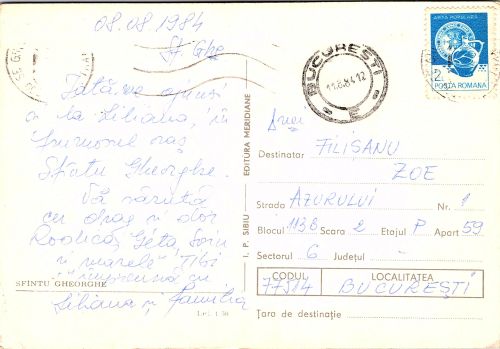 08.08.1984
Sf. Ghe
Iată-ne ajunși
și la Liliana, în
frumosul oraș
Sfîntu Gheorghe.
Vă sărută
cu drag și dor
Rodica, Geta, Sorin
și marele "Tibi"
împreună cu
Liliana și familia
SFINTU GHEORGHE
Lei 1,50
I. P. SIBIU EDITURA MERIDIANE
BUCUREȘTI
11.8.84.12
E
ARTA POPULARA
2L
POSTA ROMANA
Destinatar FILIȘANU
ZOE
Strada AZURULUI Nr. 1
Blocul 113B Scara 2 Etajul P Apart 59
Sectorul 6 Județul
CODUL LOCALITATEA
77514 BUCUREȘTI
Țara de destinație